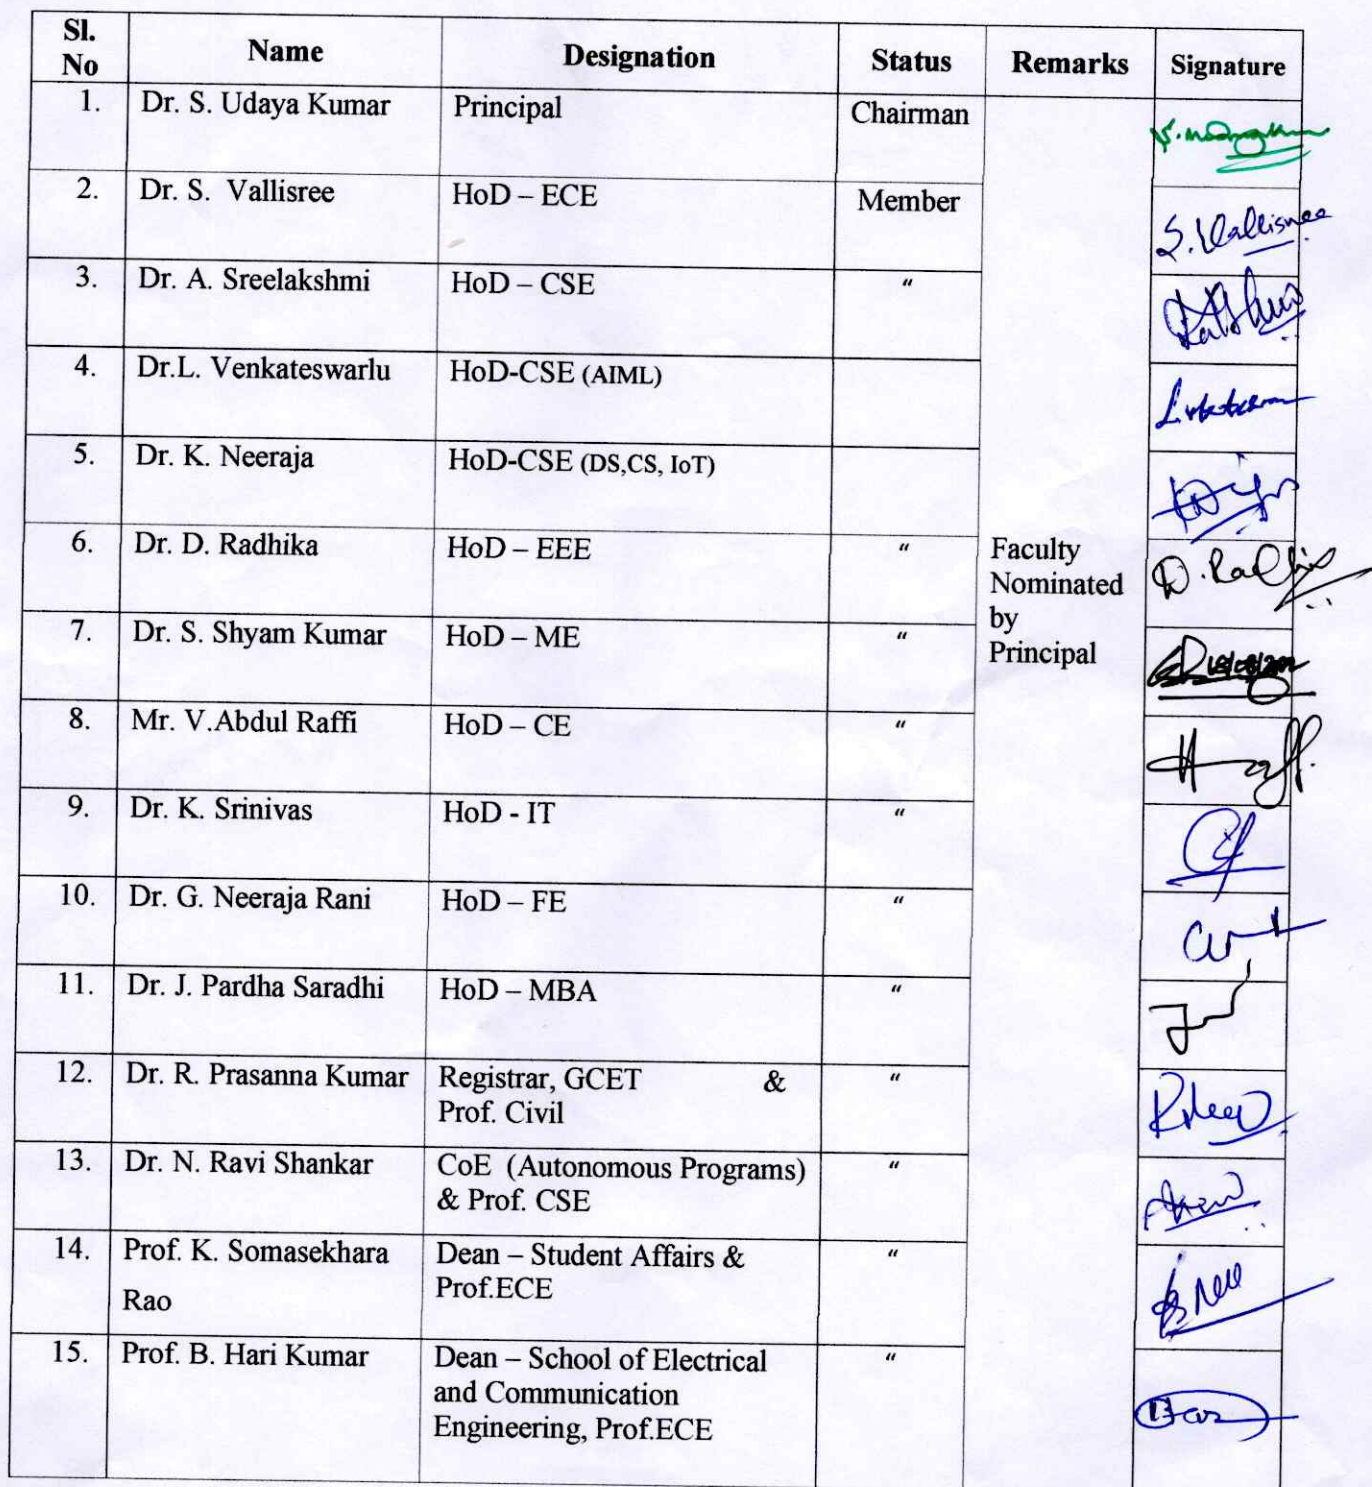 Sl. No Name Designation Status Remarks Signature
1. Dr. S. Udaya Kumar Principal Chairman
2. Dr. S. Vallisree HoD – ECE Member S. Vallisree
3. Dr. A. Sreelakshmi HoD – CSE "
4. Dr.L. Venkateswarlu HoD-CSE (AIML)
5. Dr. K. Neeraja HoD-CSE (DS,CS, IoT)
6. Dr. D. Radhika HoD – EEE " D. Radhika
7. Dr. S. Shyam Kumar HoD – ME "
Faculty
Nominated
by
Principal
8. Mr. V.Abdul Raffi HoD – CE "
9. Dr. K. Srinivas HoD - IT "
10. Dr. G. Neeraja Rani HoD – FE "
11. Dr. J. Pardha Saradhi HoD – MBA "
12. Dr. R. Prasanna Kumar Registrar, GCET & "
Prof. Civil
13. Dr. N. Ravi Shankar CoE (Autonomous Programs) "
& Prof. CSE
14. Prof. K. Somasekhara Dean – Student Affairs & "
Rao Prof.ECE
15. Prof. B. Hari Kumar Dean – School of Electrical "
and Communication
Engineering, Prof.ECE